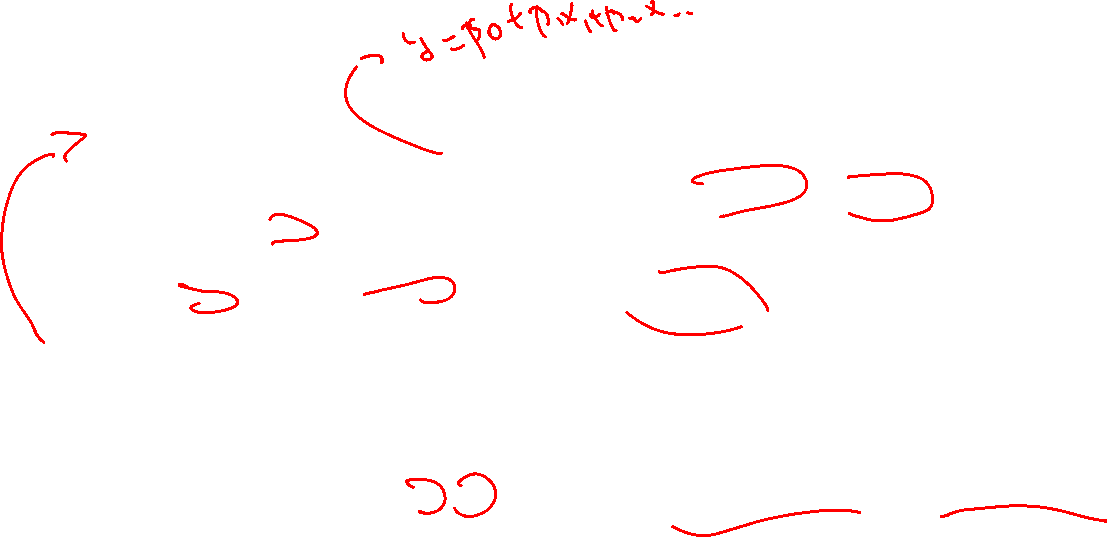 y = β0 + β1x1 + β2x..